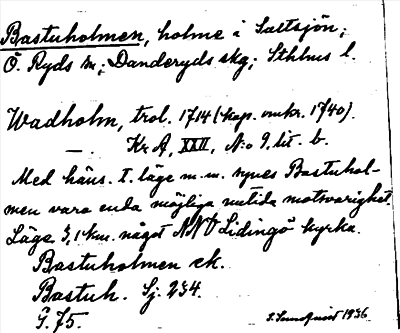 Bastuholmen, holme i Saltsjön;
Ö. Ryds sn; Danderyds skg; Sthlms l.
Wadholm, trol. 1714 (kop. omkr. 1740).
—. Kr. A, XXII, N:o 9. lit. b.
Med häns. t. läge m. m. synes Bastuhol-
men vara enda möjliga nutida motsvarighet.
Läge 3,1 km. något NNV Lidingö kyrka.
Bastuholmen ek.
Bastuh. Sj. 234.
G. 75.
1936